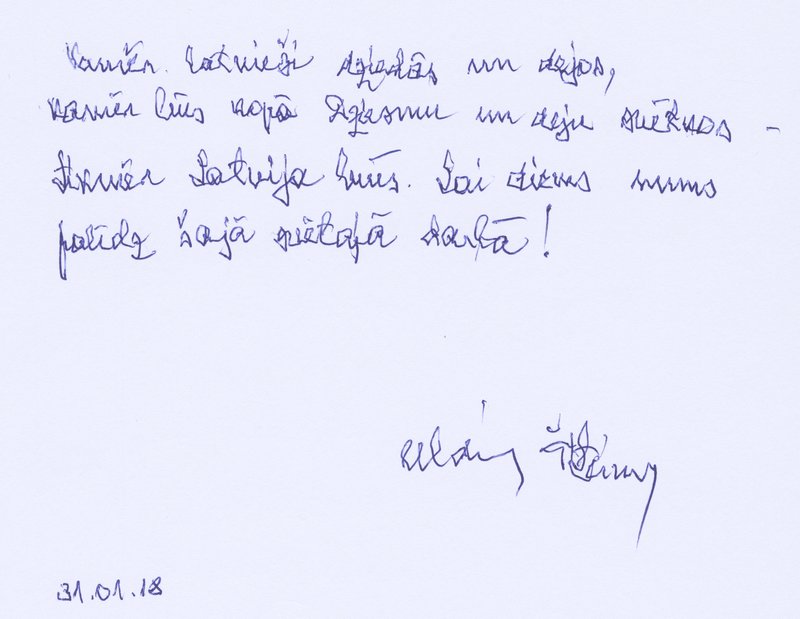 Kamēr latvieši dziedās un dejos,
kamēr būs kopā Dziesmu un deju svētkos -
tikmēr Latvija būs. Lai dievs mums
palīdz šajā svētajā darbā!
Uldis
31.01.18